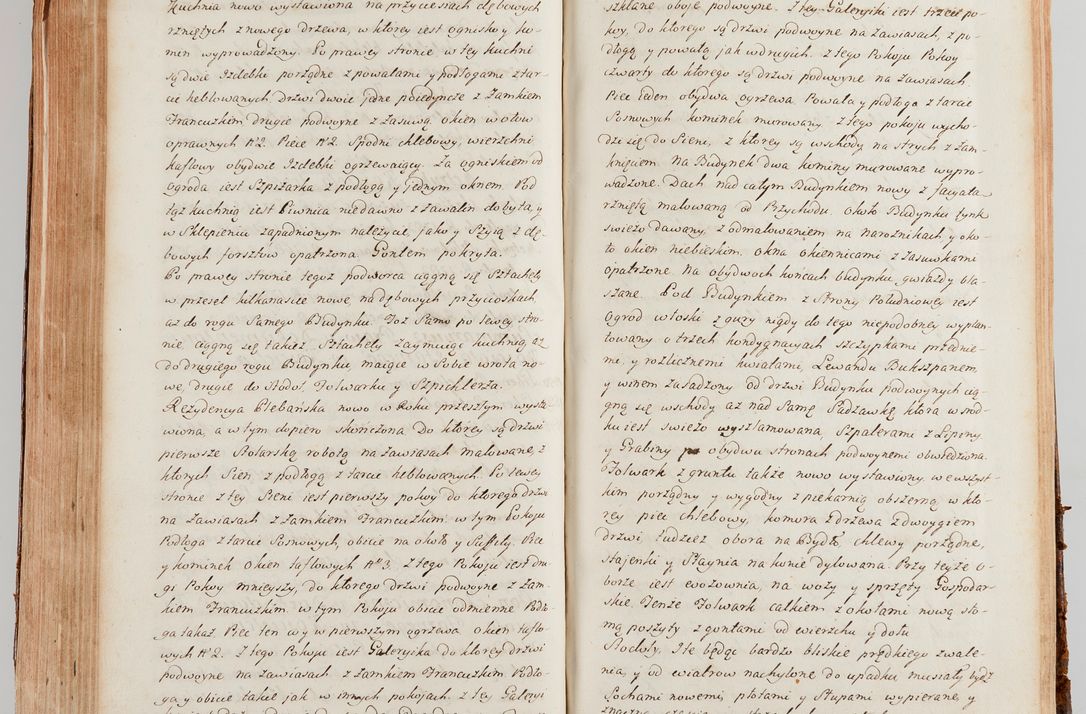 Kuchnia nowo wystawiona na przyciesiach dębowych
rzniętych z nowego drzewa, w ktorey iest ognisko y ko-
men wyprowadzony. Po prawey stronie w tey kuchni
są dwie Izdebki porządne z powałami y podłogami z tar-
cic heblowanych drzwi dwoie jedne poiedyncze z Zamkiem
Francuzkim drugie podwoyne z Zasuwą okien w ołow
oprawnych N° 2. Piece N° 2. Spodni chlebowy, wierzchni
kaflowy obydwie Izdebki ogrzewaiący. Za ogniskiem od
Ogroda iest Szpizarka z podłogą y jednym oknem. Pod
tąż kuchnią iest Piwnica niedawno z Zawalen dobyta y
w Sklepieniu zapadnionym należycie jako y Szyią z dę-
bowych forsztow opatrzona Gontem pokryta.
Po prawey stronie tegoż podworca ciągną się Sztachety
w przęseł kilkanascie nowe na dębowych przycioskach
aż do rogu Samego Budynku. Toż Samo po lewey stro-
nie ciągną się takież Sztachety zaymuiąc kuchnią aż
do drugiego rogu Budynku maiąc w Sobie wrota no-
we, drugie do Stodoł, Folwarku y Szpichlerza.
Rezydencya Plebańska nowo w Roku przeszłym wysta-
wiona, a w tym dopiero skończona Do ktorey są drzwi
pierwsze Stolarską robotą na zawiasach malowane, z
ktorych Sień z podłogą z tarcic heblowanych. Po lewey
stronie z tey Sieni iest pierwszy pokoy do ktorego drzwi
na Zawiasach z Zamkiem Francuzkim w tym Pokoju
Podłoga z tarcic Sosnowych, obicie na około y Suffity. Piec
y kominek okien taflowych N° 3. z tego Pokoju iest dru-
gi Pokoy mnieyszy, do ktorego drzwi podwoyne z Zam-
kiem Francuzkim w tym Pokoju obicie odmienne Podło-
ga takaż. Piec ten co y w pierwszym ogrzewa okien taflo-
wych N° 2. Z tego Pokoju iest Galeryika do ktorey drzwi
podwoyne na Zawiasach z Zamkiem Francuzkim Podło-
ga y obicie takie jak w innych pokojach. z tey Galeryi
szklane oboie podwoyne. Z tey Galeryiki iest trzeci po-
koy, do ktorego są drzwi podwoyne na Zawiasach, z po-
dłogą y powałą jak w drugich. z tego Pokoju Pokoy
czwarty do ktorego są drzwi podwoyne na Zawiasach.
Piec ieden obydwa ogrzewa. Powała y podłoga z tarcic
Sosnowych kominek murowany. Z tego pokoju wycho-
dzi się do Sieni, z ktorey są wschody na strych z Zam-
knięciem Na Budynek dwa kominy murowane wypro-
wadzone. Dach nad całym Budynkiem nowy z facyatą
rzniętą malowaną od Przychodu. około Budynku tynk
swieżo dawany z odmalowaniem na narożnikach y oko-
ło okien niebieskim. okna okiennicami z Zasuwkami
opatrzone. Na obydwoch końcach budynku gwiazdy bla-
szane. Pod Budynkiem z Strony Południowey iest
Ogrod włoski z gury nigdy do tego niepodobney wyplan-
towany o trzech kondygnacyach szczypkami przednie-
mi y rozlicznemi kwiatami, Lewandą Bukszpanem
y winem zasadzony od drzwi Budynku podwoynych cią-
gną się wschody aż nad Samę Sadzawkę ktora w środ-
ku iest swieżo wyszlamowana, Szpalerami z Lipiny
y Grabiny po obydwu stronach podwoynemi obwiedziona.
Folwark z gruntu także nowo wystawiony we wszyst-
kim porządny y wygodny z piekarnią obszerną w kto-
rey piec chlebowy, komora z drzewa z dwoygiem
drzwi, tudzież obora na Bydło, chlewy porządne,
stajenki y Staynia na konie dylowana. Przy teyże o-
borze iest wozownia, na wozy y sprzęty Gospodar-
skie. Tenże Folwark całkiem z okołami nową sło-
mą poszyty z gontami od wierzchu y dołu
Stodoły. Ile będąc bardzo bliskie prędkiego zwale-
nia, y od wiatrow nachylone do upadku musiały bydź
Sochami nowemi, płotami y Słupami wypierane, y